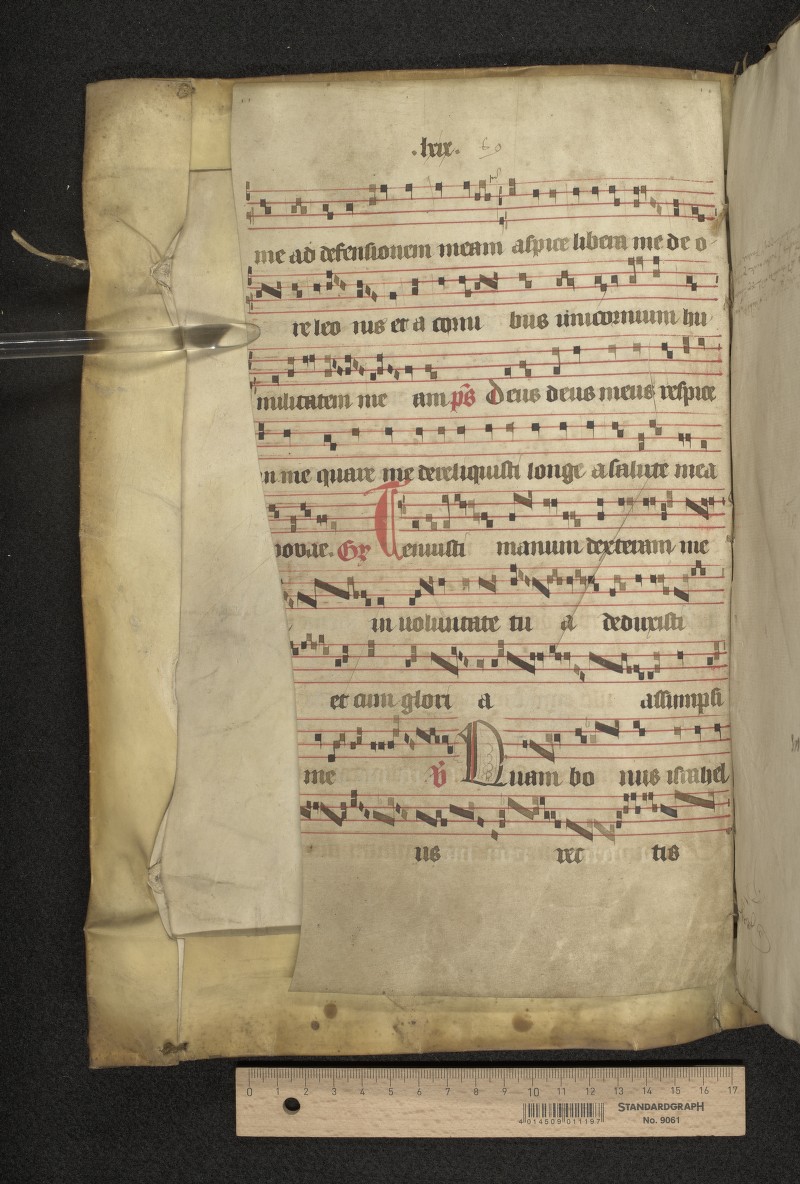 .lxix. 69
me ad defensionem meam aspice libera me de o
re leo nis et a cornu bus unicornium hu
militatem me am ps Deus deus meus respice
in me quare me dereliquisti longe a salute mea
novae. Gr Tenuisti manum dexteram me
in voluntate tu a deduxisti
et cum glori a assumpsi
me v Quam bo nus israhel
us rec tis
0 1 2 3 4 5 6 7 8 9 10 11 12 13 14 15 16 17
4 014509 011197
STANDARDGRAPH
No. 9061